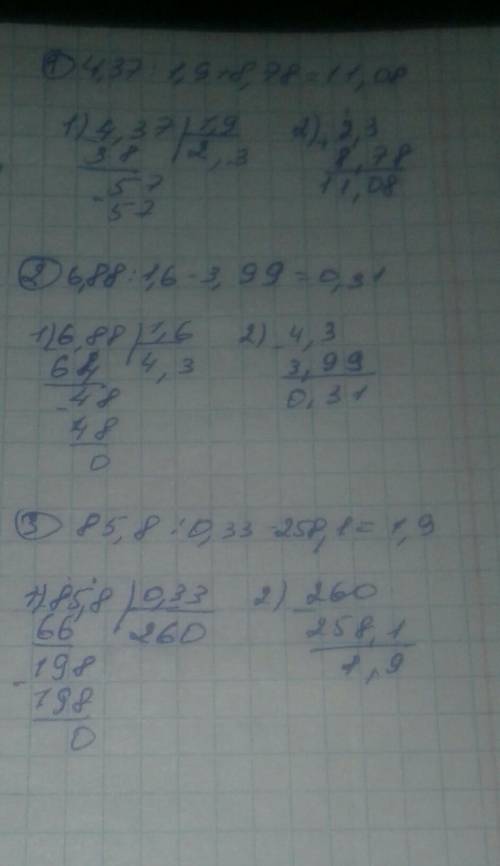 ① 4,37 : 1,9 + 8,78 = 11,08
1) 4,37 | 1,9 2) 2,3
38 2,3 8,78
- 57 11,08
57
② 6,88 : 1,6 - 3,99 = 0,31
1) 6,88 | 1,6 2) - 4,3
64 4,3 3,99
- 48 0,31
48
0
③ 85,8 : 0,33 - 258,1 = 1,9
1) 85,8 | 0,33 2) - 260
66 260 258,1
- 198 1,9
198
0